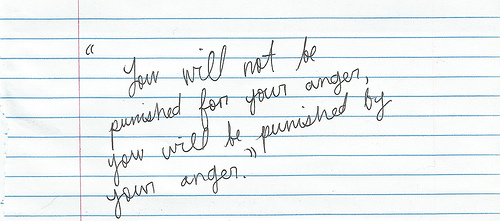 "You will not be
punished for your anger,
you will be punished by
your anger."